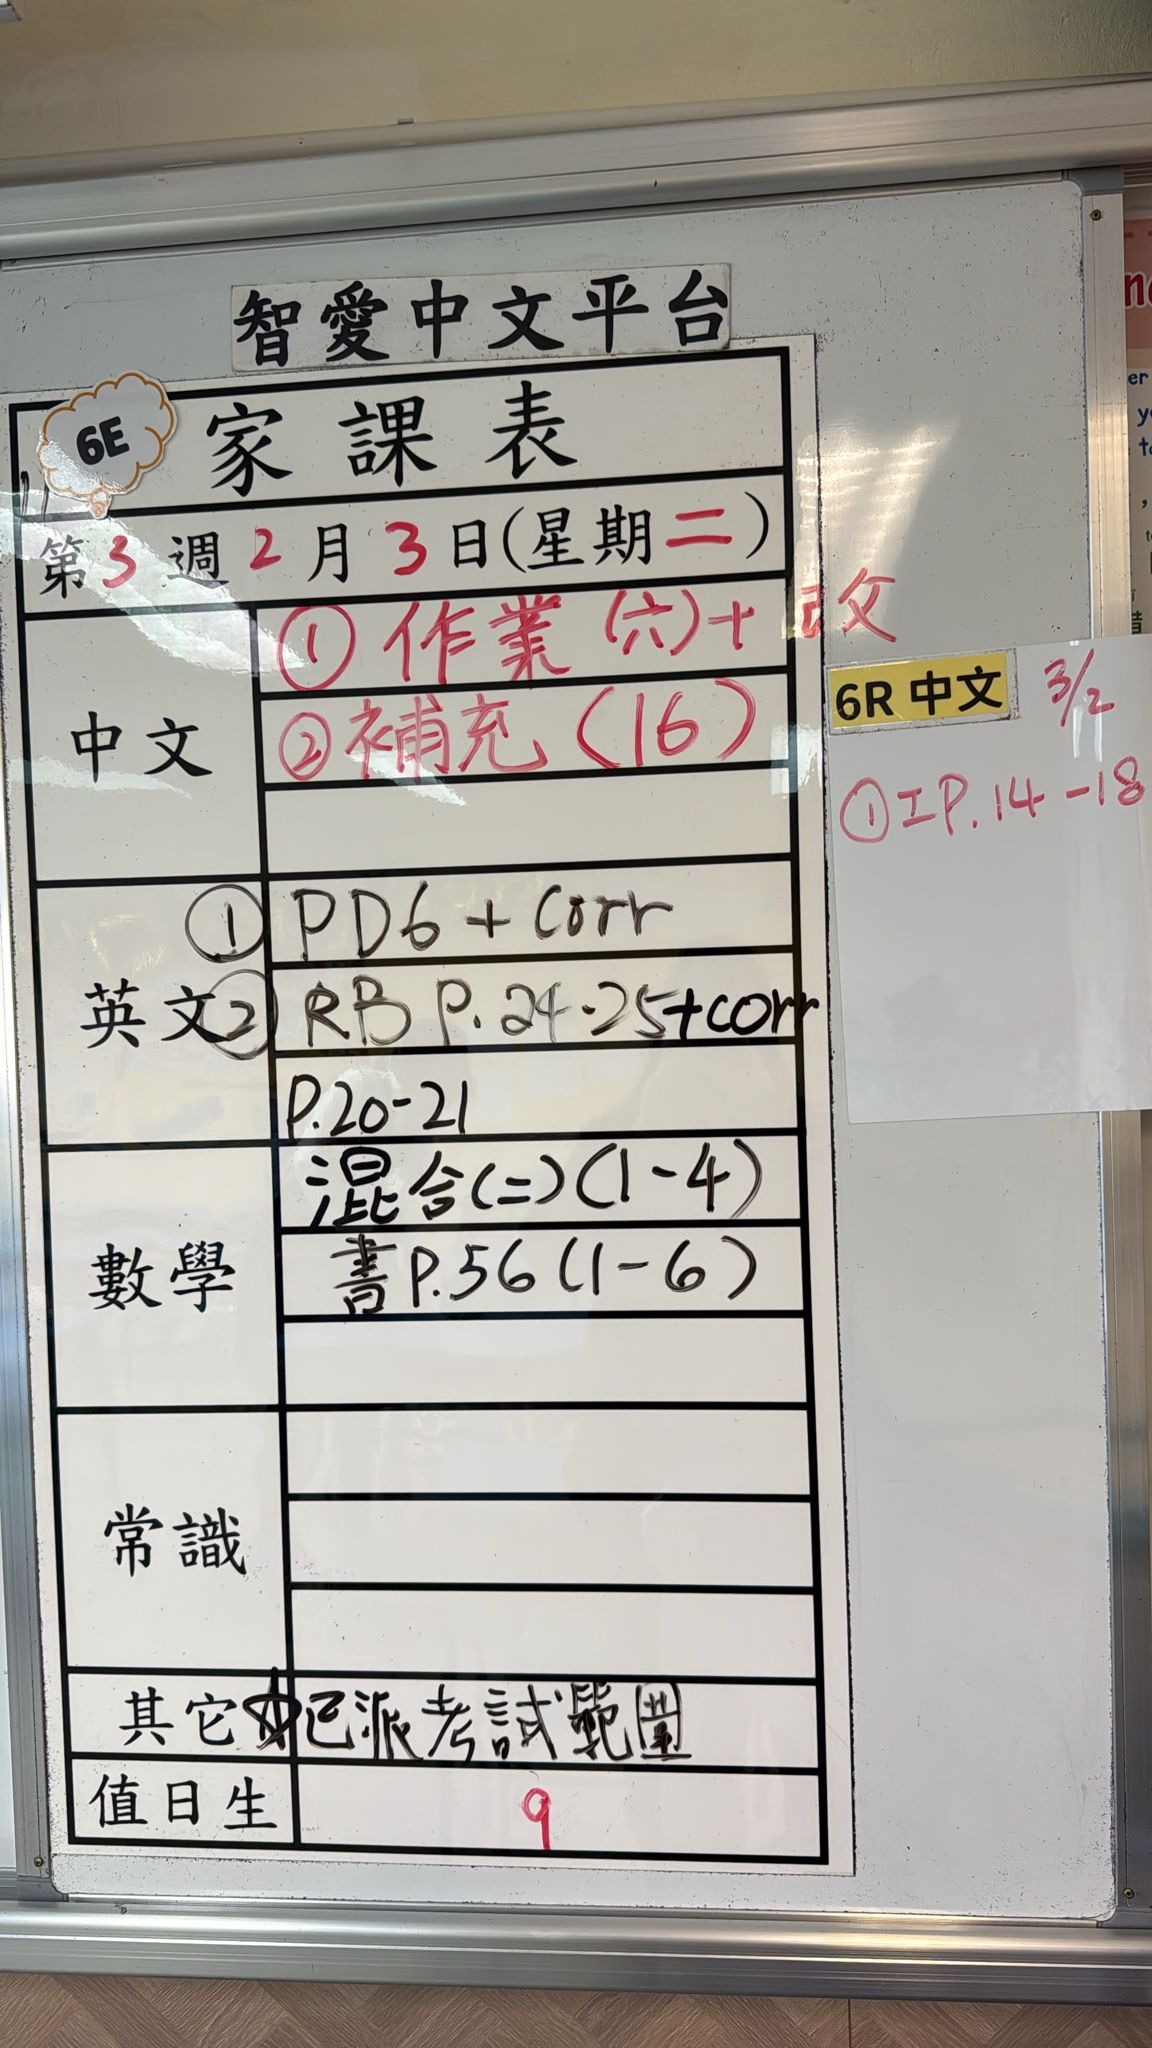 智愛中文平台
6E
家課表
第3週2月3日(星期二)
中文
①作業(六)+改
②補充(16)
英文
①PD6+Corr
②RB P.24-25+corr
P.20-21
數學
混合(二)(1-4)
書P.56(1-6)
常識
其它
☆已派考試範圍
值日生
9
6R 中文
3/2
①工P.14-18